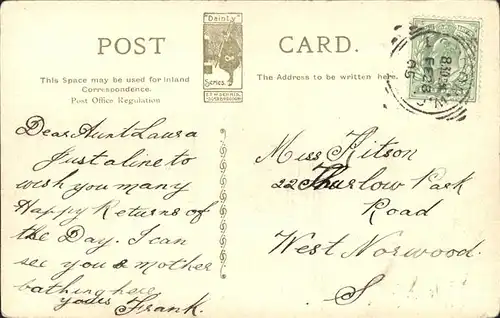 POST CARD.
"Dainty"
Series.
E.T.W. DENNIS
This Space may be used for Inland
Correspondence.
Post Office Regulation
The Address to be written here.
Dear Aunt Laura
Just a line to
wish you many
Happy Returns of
the Day. I can
see you & mother
bathing here
yours Frank.
Miss Kitson
22 Thurlow Park
Road
West Norwood.
S